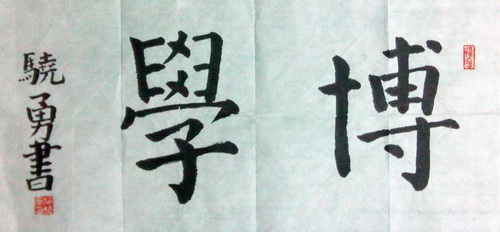 博學
驍勇書